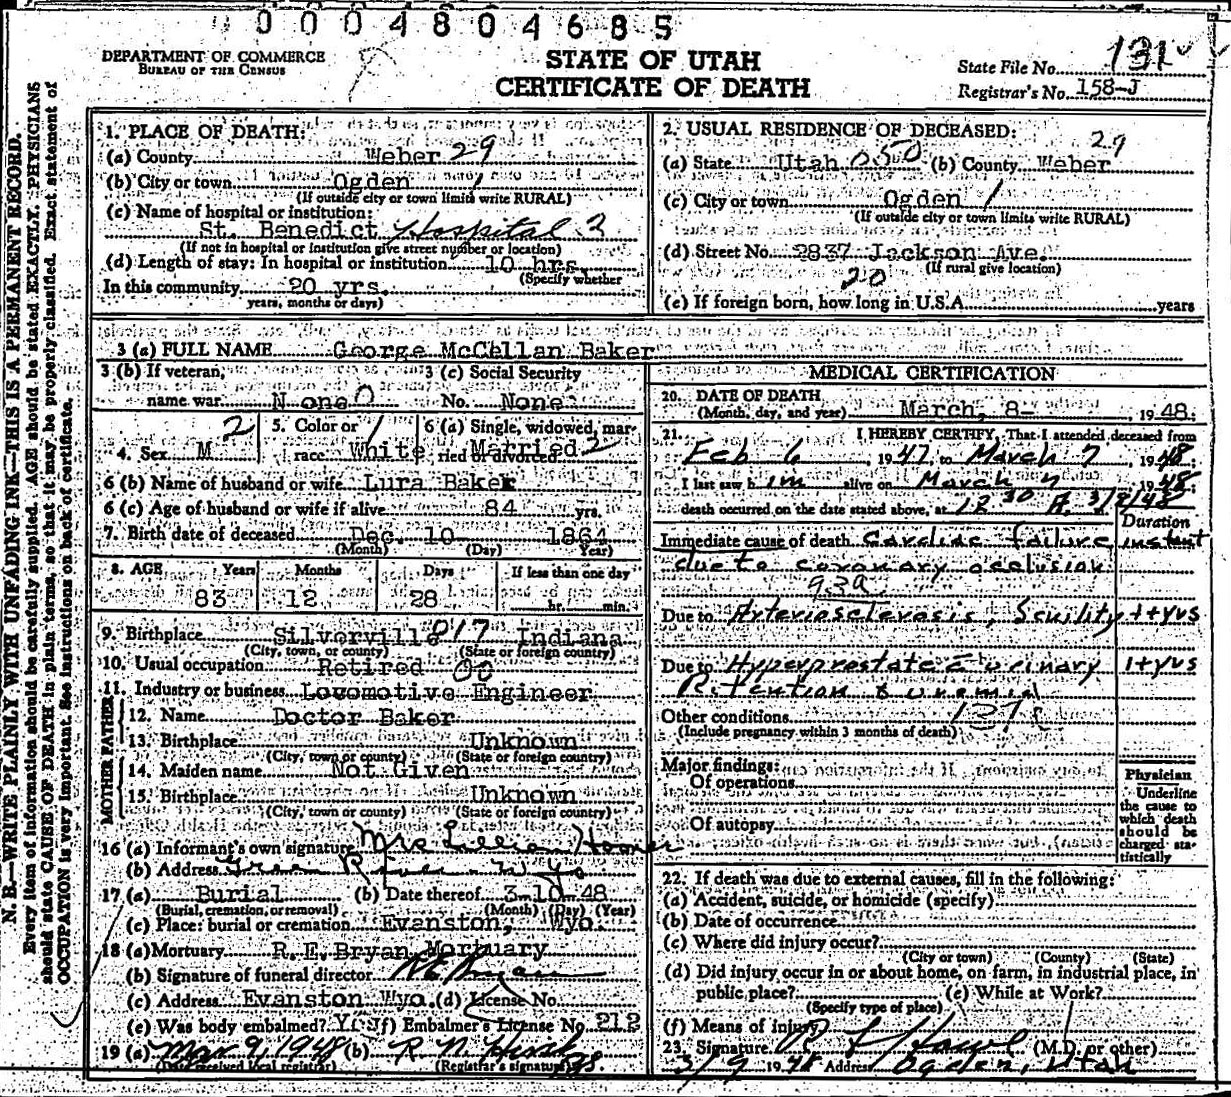 0 0 0 4 8 0 4 6 8 5
DEPARTMENT OF COMMERCE
BUREAU OF THE CENSUS
STATE OF UTAH
CERTIFICATE OF DEATH
State File No. 131
Registrar's No. 158-J
N. B.—WRITE PLAINLY WITH UNFADING INK—THIS IS A PERMANENT RECORD.
Every item of information should be carefully supplied. AGE should be stated EXACTLY. PHYSICIANS
should state CAUSE OF DEATH in plain terms, so that it may be properly classified. Exact statement of
OCCUPATION is very important. See instructions on back of certificate.
1. PLACE OF DEATH:
(a) County Weber 29
(b) City or town Ogden 1
(If outside city or town limits write RURAL)
(c) Name of hospital or institution:
St. Benedict Hospital 2
(If not in hospital or institution give street number or location)
(d) Length of stay: In hospital or institution 10 hrs
(Specify whether
In this community 20 yrs.
years, months or days)
2. USUAL RESIDENCE OF DECEASED:
29
(a) State Utah 050 (b) County Weber
(c) City or town Ogden 1
(If outside city or town limits write RURAL)
(d) Street No. 2837 Jackson Ave.
20 (If rural give location)
(e) If foreign born, how long in U.S.A. years
3 (a) FULL NAME George McCellan Baker
3 (b) If veteran, 3 (c) Social Security
name war None 0 No. None
2 5. Color or 1 6 (a) Single, widowed, mar-
4. Sex M race White ried or divorced Married 2
6 (b) Name of husband or wife Lura Baker
6 (c) Age of husband or wife if alive 84 yrs.
7. Birth date of deceased Dec. 10 1864
(Month) (Day) Year)
8. AGE Years Months Days If less than one day
83 12 28 hr. min.
9. Birthplace Silverville 017 Indiana
(City, town, or county) (State or foreign country)
10. Usual occupation Retired 00
11. Industry or business Locomotive Engineer
FATHER
12. Name Doctor Baker
13. Birthplace Unknown
(City, town or county) (State or foreign country)
MOTHER
14. Maiden name Not Given
15. Birthplace Unknown
(City, town or county) (State or foreign country)
16 (a) Informant's own signature Mrs Lillian Homer
(b) Address Green River - Wyo
17 (a) Burial (b) Date thereof 3-10-48
(Burial, cremation, or removal) (Month) (Day) (Year)
(c) Place: burial or cremation Evanston, Wyo.
18 (a) Mortuary R.E.Bryan Mortuary
(b) Signature of funeral director R E Bryan
(c) Address Evanston Wyo. (d) License No.
(e) Was body embalmed? Yes (f) Embalmer's License No 212
19 (a) Mar 9, 1948 (b) R. N. Hirsh
(Date received local registrar) (Registrar's signature)
MEDICAL CERTIFICATION
20. DATE OF DEATH
(Month, day, and year) March, 8- , 1948.
21. I HEREBY CERTIFY, That I attended deceased from
Feb 6 , 1947 to March 7 , 1948
I last saw h im alive on March 7 1948
death occurred on the date stated above, at 12 30 A. 3/8/48
Duration
Immediate cause of death Cardiac failure, instant
due to coronary occlusion
93a
Due to Arteriosclerosis, Senility 1+yrs
Due to Hyperprostate c urinary 1+yrs
Retention & uremia
Other conditions 137
(Include pregnancy within 3 months of death)
Major findings:
Of operations
Of autopsy
Physician
Underline
the cause to
which death
should be
charged sta-
tistically
22. If death was due to external causes, fill in the following:
(a) Accident, suicide, or homicide (specify)
(b) Date of occurrence
(c) Where did injury occur?
(City or town) (County) (State)
(d) Did injury occur in or about home, on farm, in industrial place, in
public place? (e) While at Work?
(Specify type of place)
(f) Means of injury
23. Signature (M.D. or other)
3/9 1948 Address Ogden, Utah